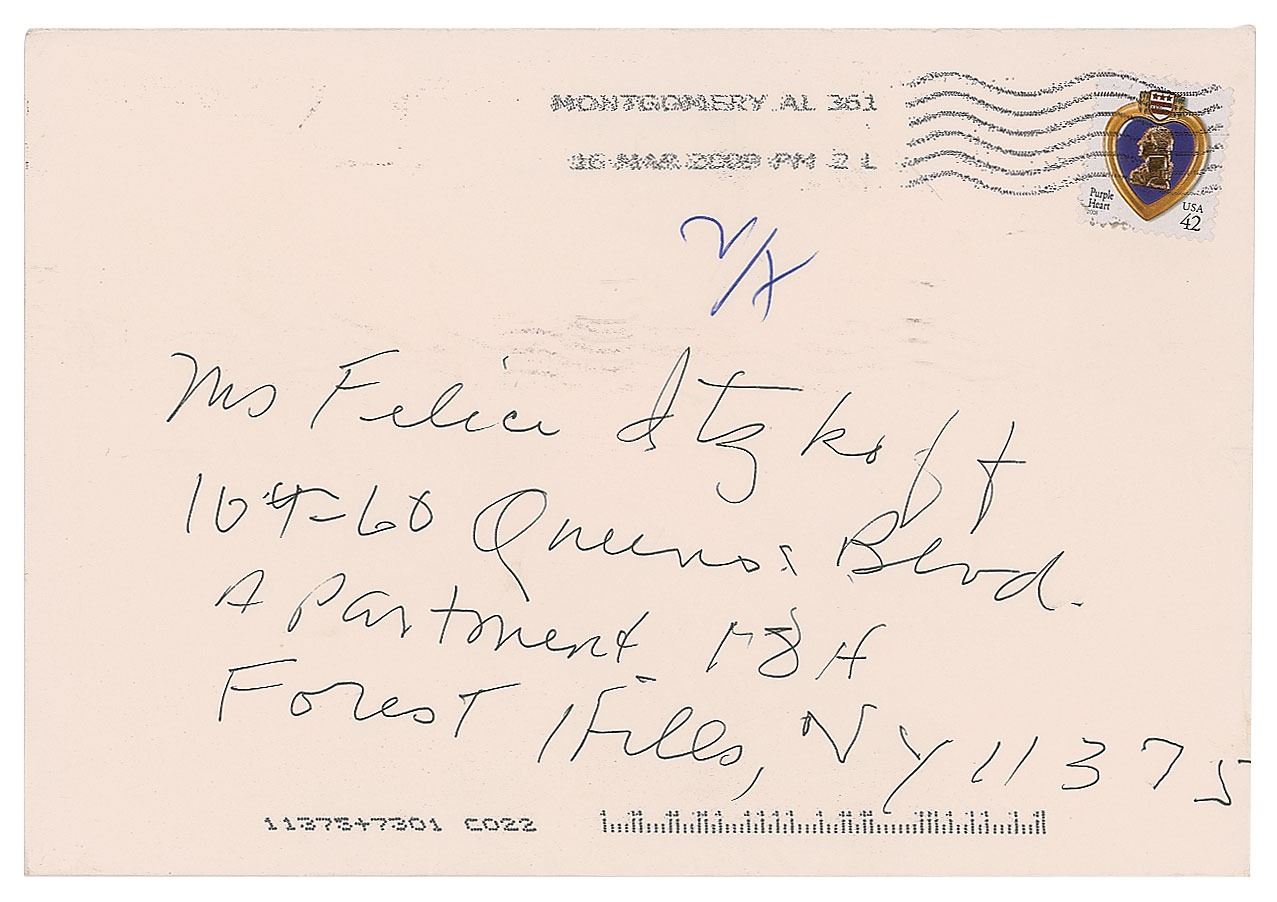 MONTGOMERY AL 361
16 MAR 2009 PM 2 L
Purple
Heart
2008
USA
42
Ms Felice Itzkoff
104-60 Queens Blvd.
Apartment 18H
Forest Hills, NY 11375
11375+7301 C022